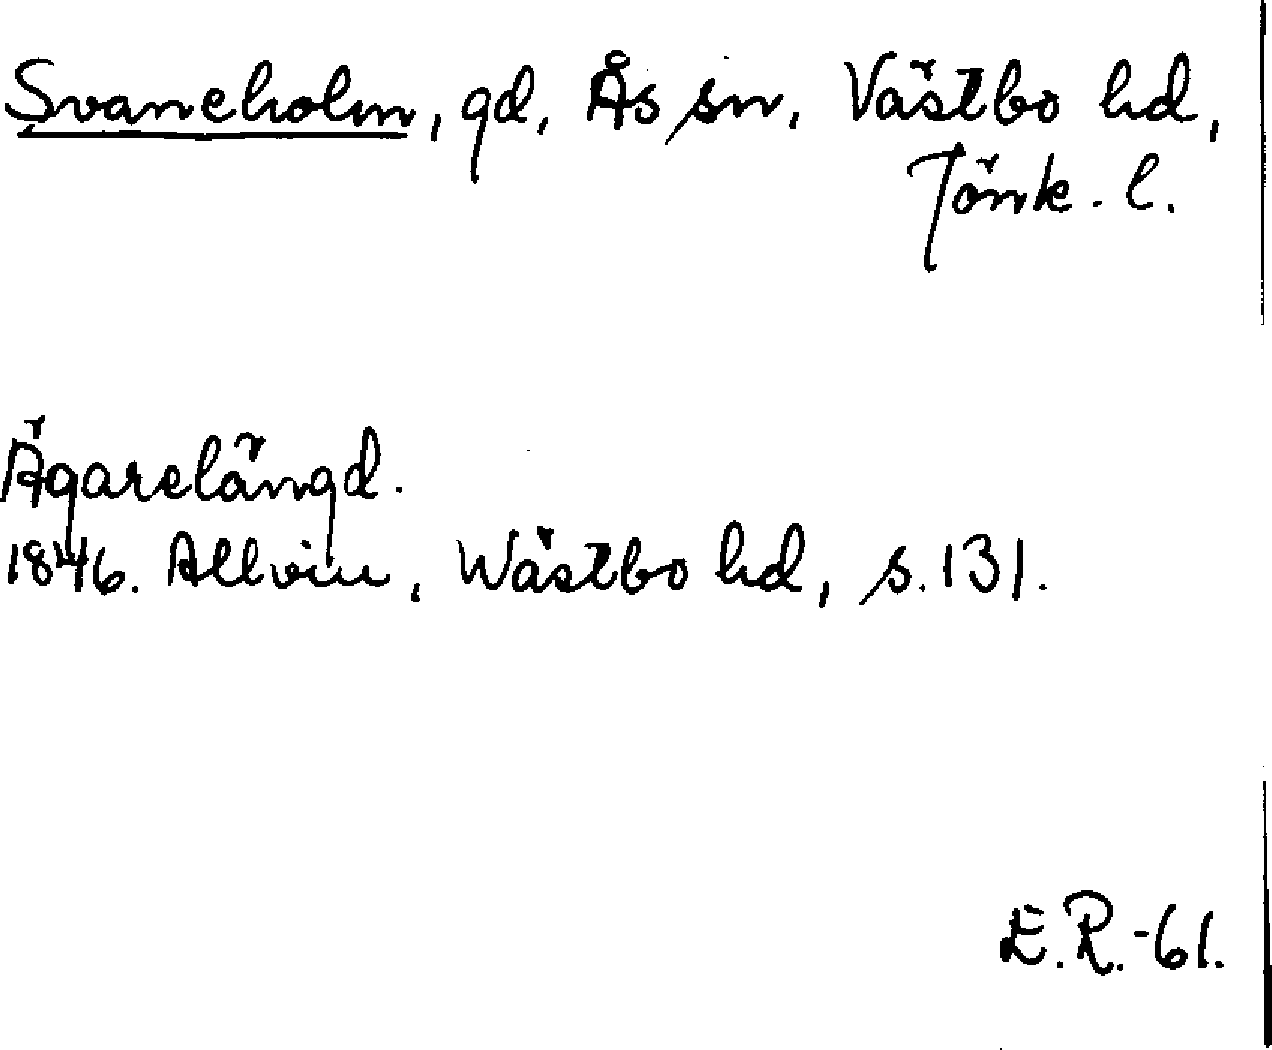 Svaneholm, gd, Ås sn, Västbo hd,
Jönk. l.
Ägarelängd.
1846. Allvin, Wästbo hd, s. 131.
E.R.-61.